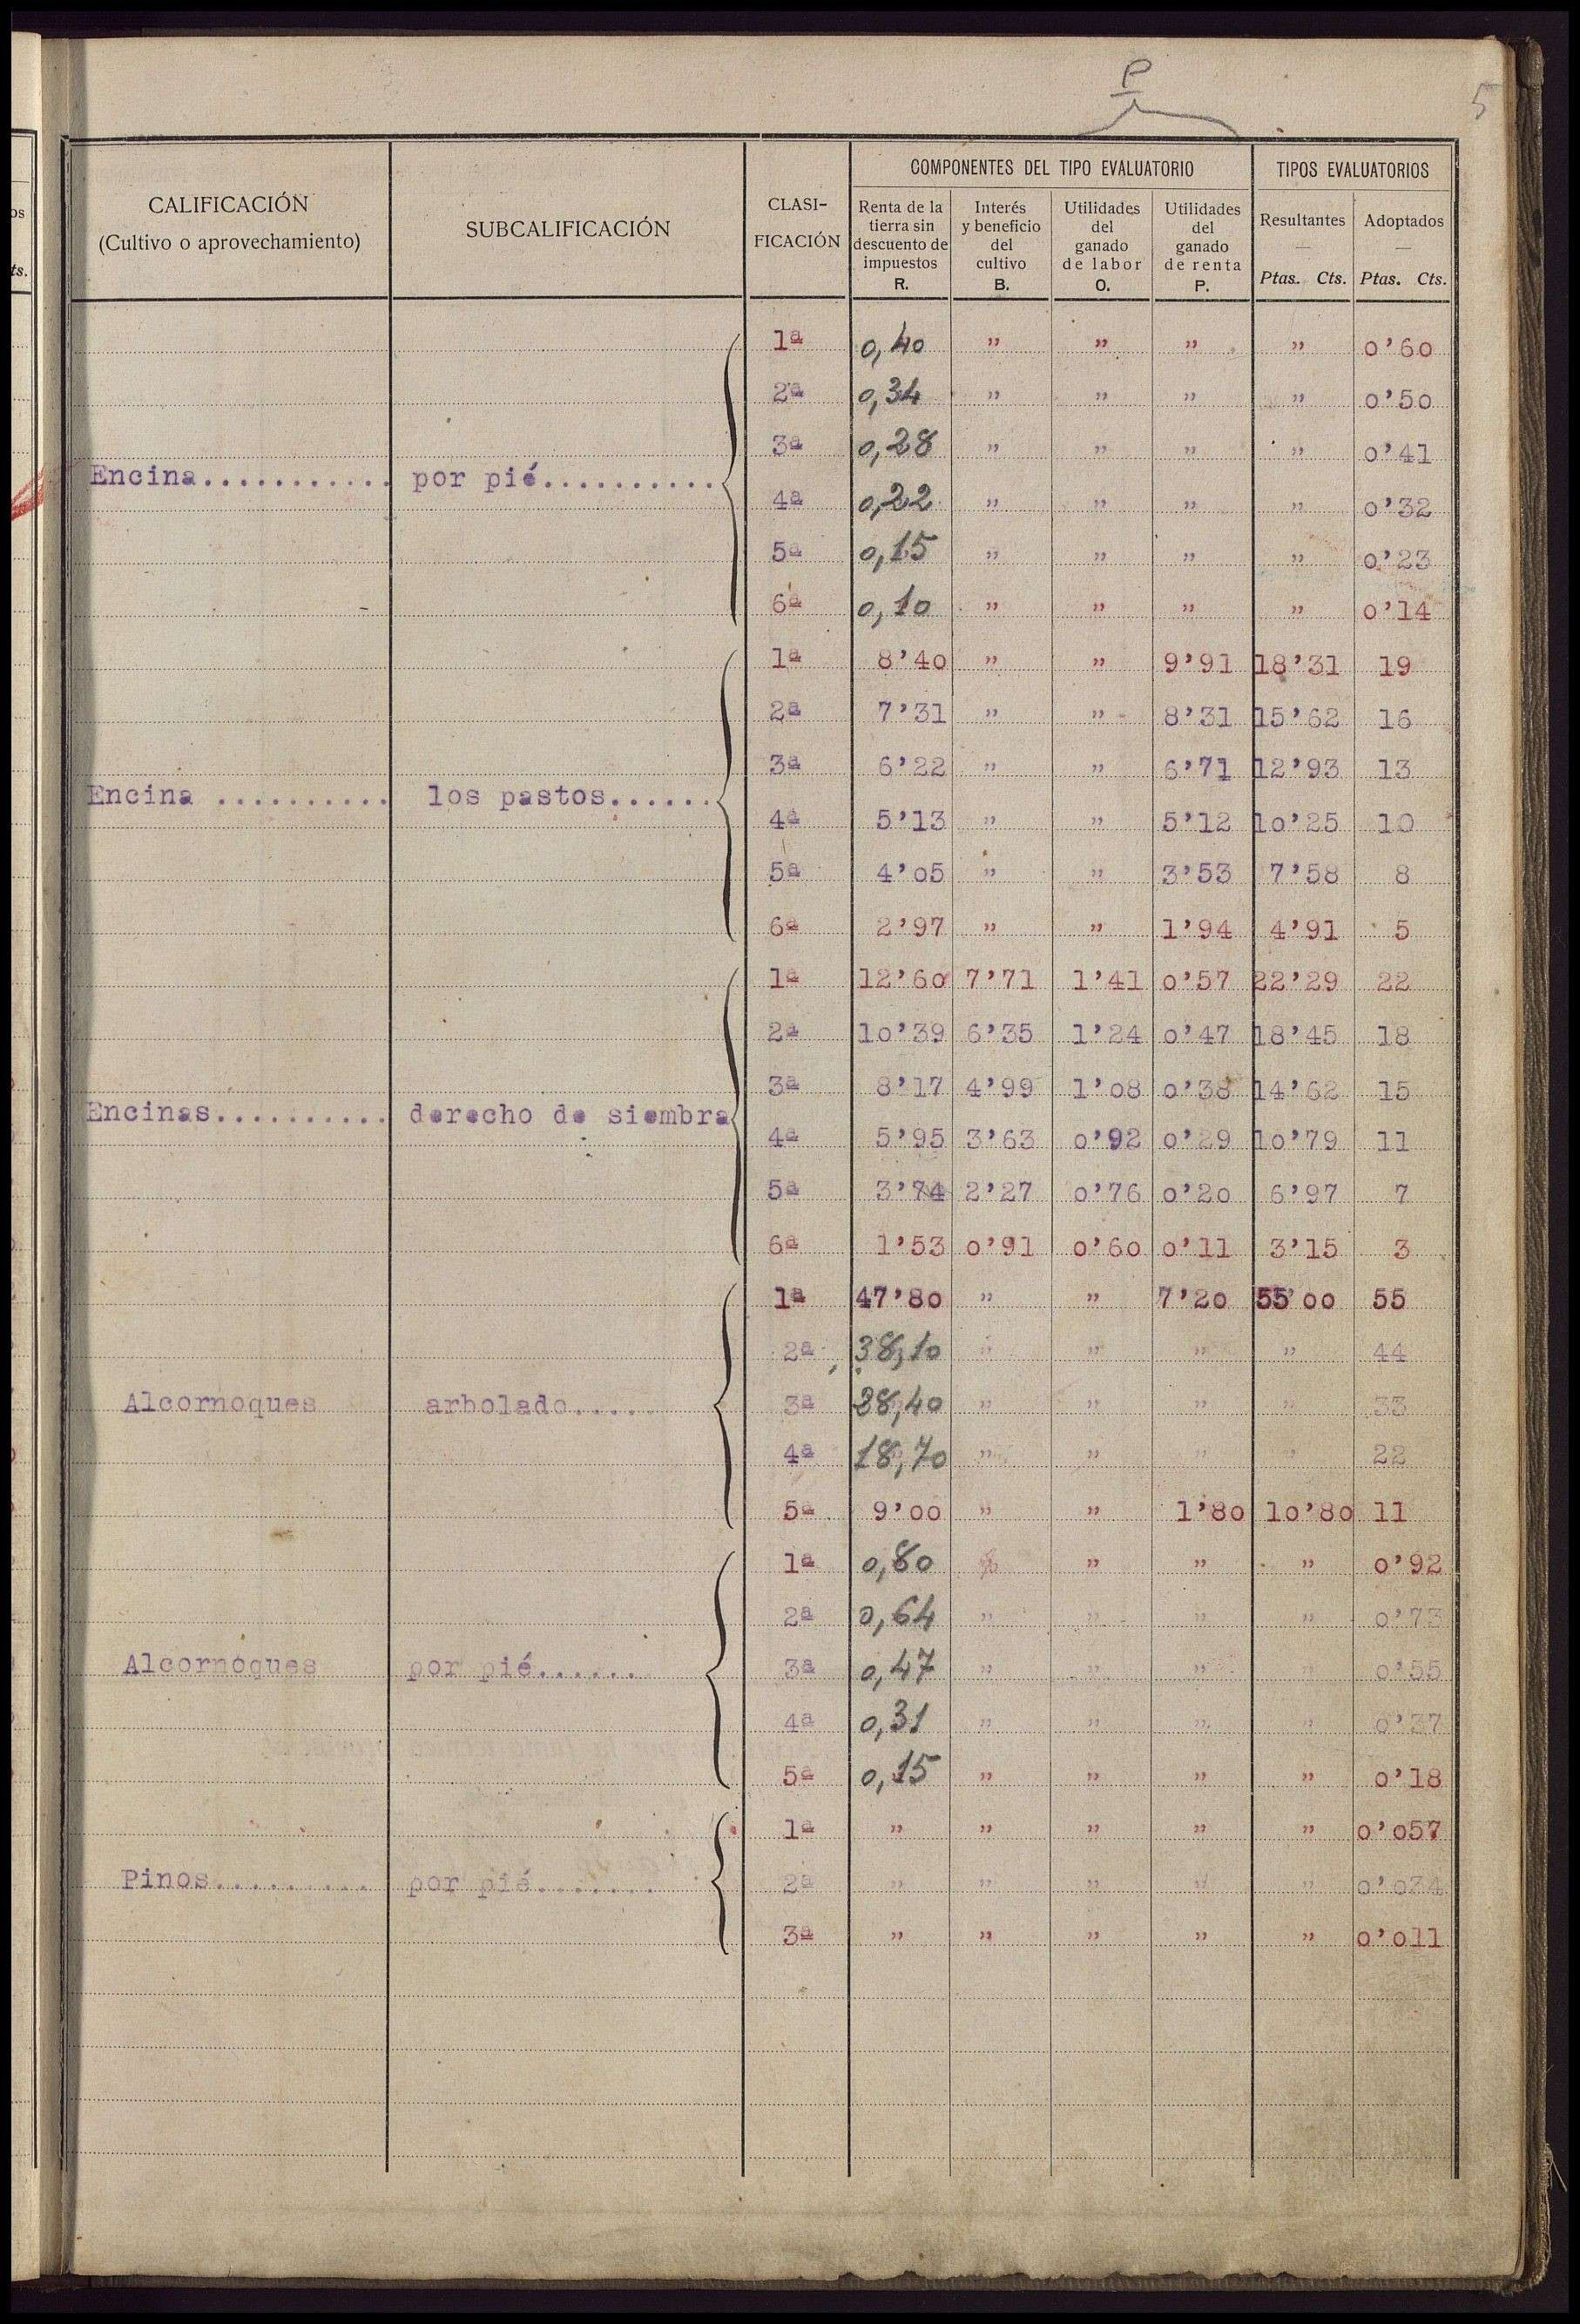 P
5
CALIFICACIÓN
(Cultivo o aprovechamiento)
SUBCALIFICACIÓN
CLASI-
FICACIÓN
COMPONENTES DEL TIPO EVALUATORIO
TIPOS EVALUATORIOS
Renta de la
tierra sin
descuento de
impuestos
R.
Interés
y beneficio
del
cultivo
B.
Utilidades
del
ganado
de labor
O.
Utilidades
del
ganado
de renta
P.
Resultantes
—
Ptas. Cts.
Adoptados
—
Ptas. Cts.
1ª 0,40 " " " " 0'60
2ª 0,34 " " " " 0'50
3ª 0,28 " " " " 0'41
Encina........... por pié..........
4ª 0,22 " " " " 0'32
5ª 0,15 " " " " 0'23
6ª 0,10 " " " " 0'14
1ª 8'40 " " 9'91 18'31 19
2ª 7'31 " " 8'31 15'62 16
3ª 6'22 " " 6'71 12'93 13
Encina .......... los pastos......
4ª 5'13 " " 5'12 10'25 10
5ª 4'05 " " 3'53 7'58 8
6ª 2'97 " " 1'94 4'91 5
1ª 12'60 7'71 1'41 0'57 22'29 22
2ª 10'39 6'35 1'24 0'47 18'45 18
3ª 8'17 4'99 1'08 0'38 14'62 15
Encinas.......... derecho de siembra
4ª 5'95 3'63 0'92 0'29 10'79 11
5ª 3'74 2'27 0'76 0'20 6'97 7
6ª 1'53 0'91 0'60 0'11 3'15 3
1ª 47'80 " " 7'20 55'00 55
2ª 38,10 " " " " 44
Alcornoques arbolado..... 3ª 28,40 " " " " 33
4ª 18,70 " " " " 22
5ª 9'00 " " 1'80 10'80 11
1ª 0,80 " " " 0'92
2ª 0,64 " " " " 0'73
Alcornoques por pié...... 3ª 0,47 " " " " 0'55
4ª 0,31 " " " " 0'37
5ª 0,15 " " " " 0'18
1ª " " " " " 0'057
Pinos......... por pié....... 2ª " " " " " 0'034
3ª " " " " " 0'011